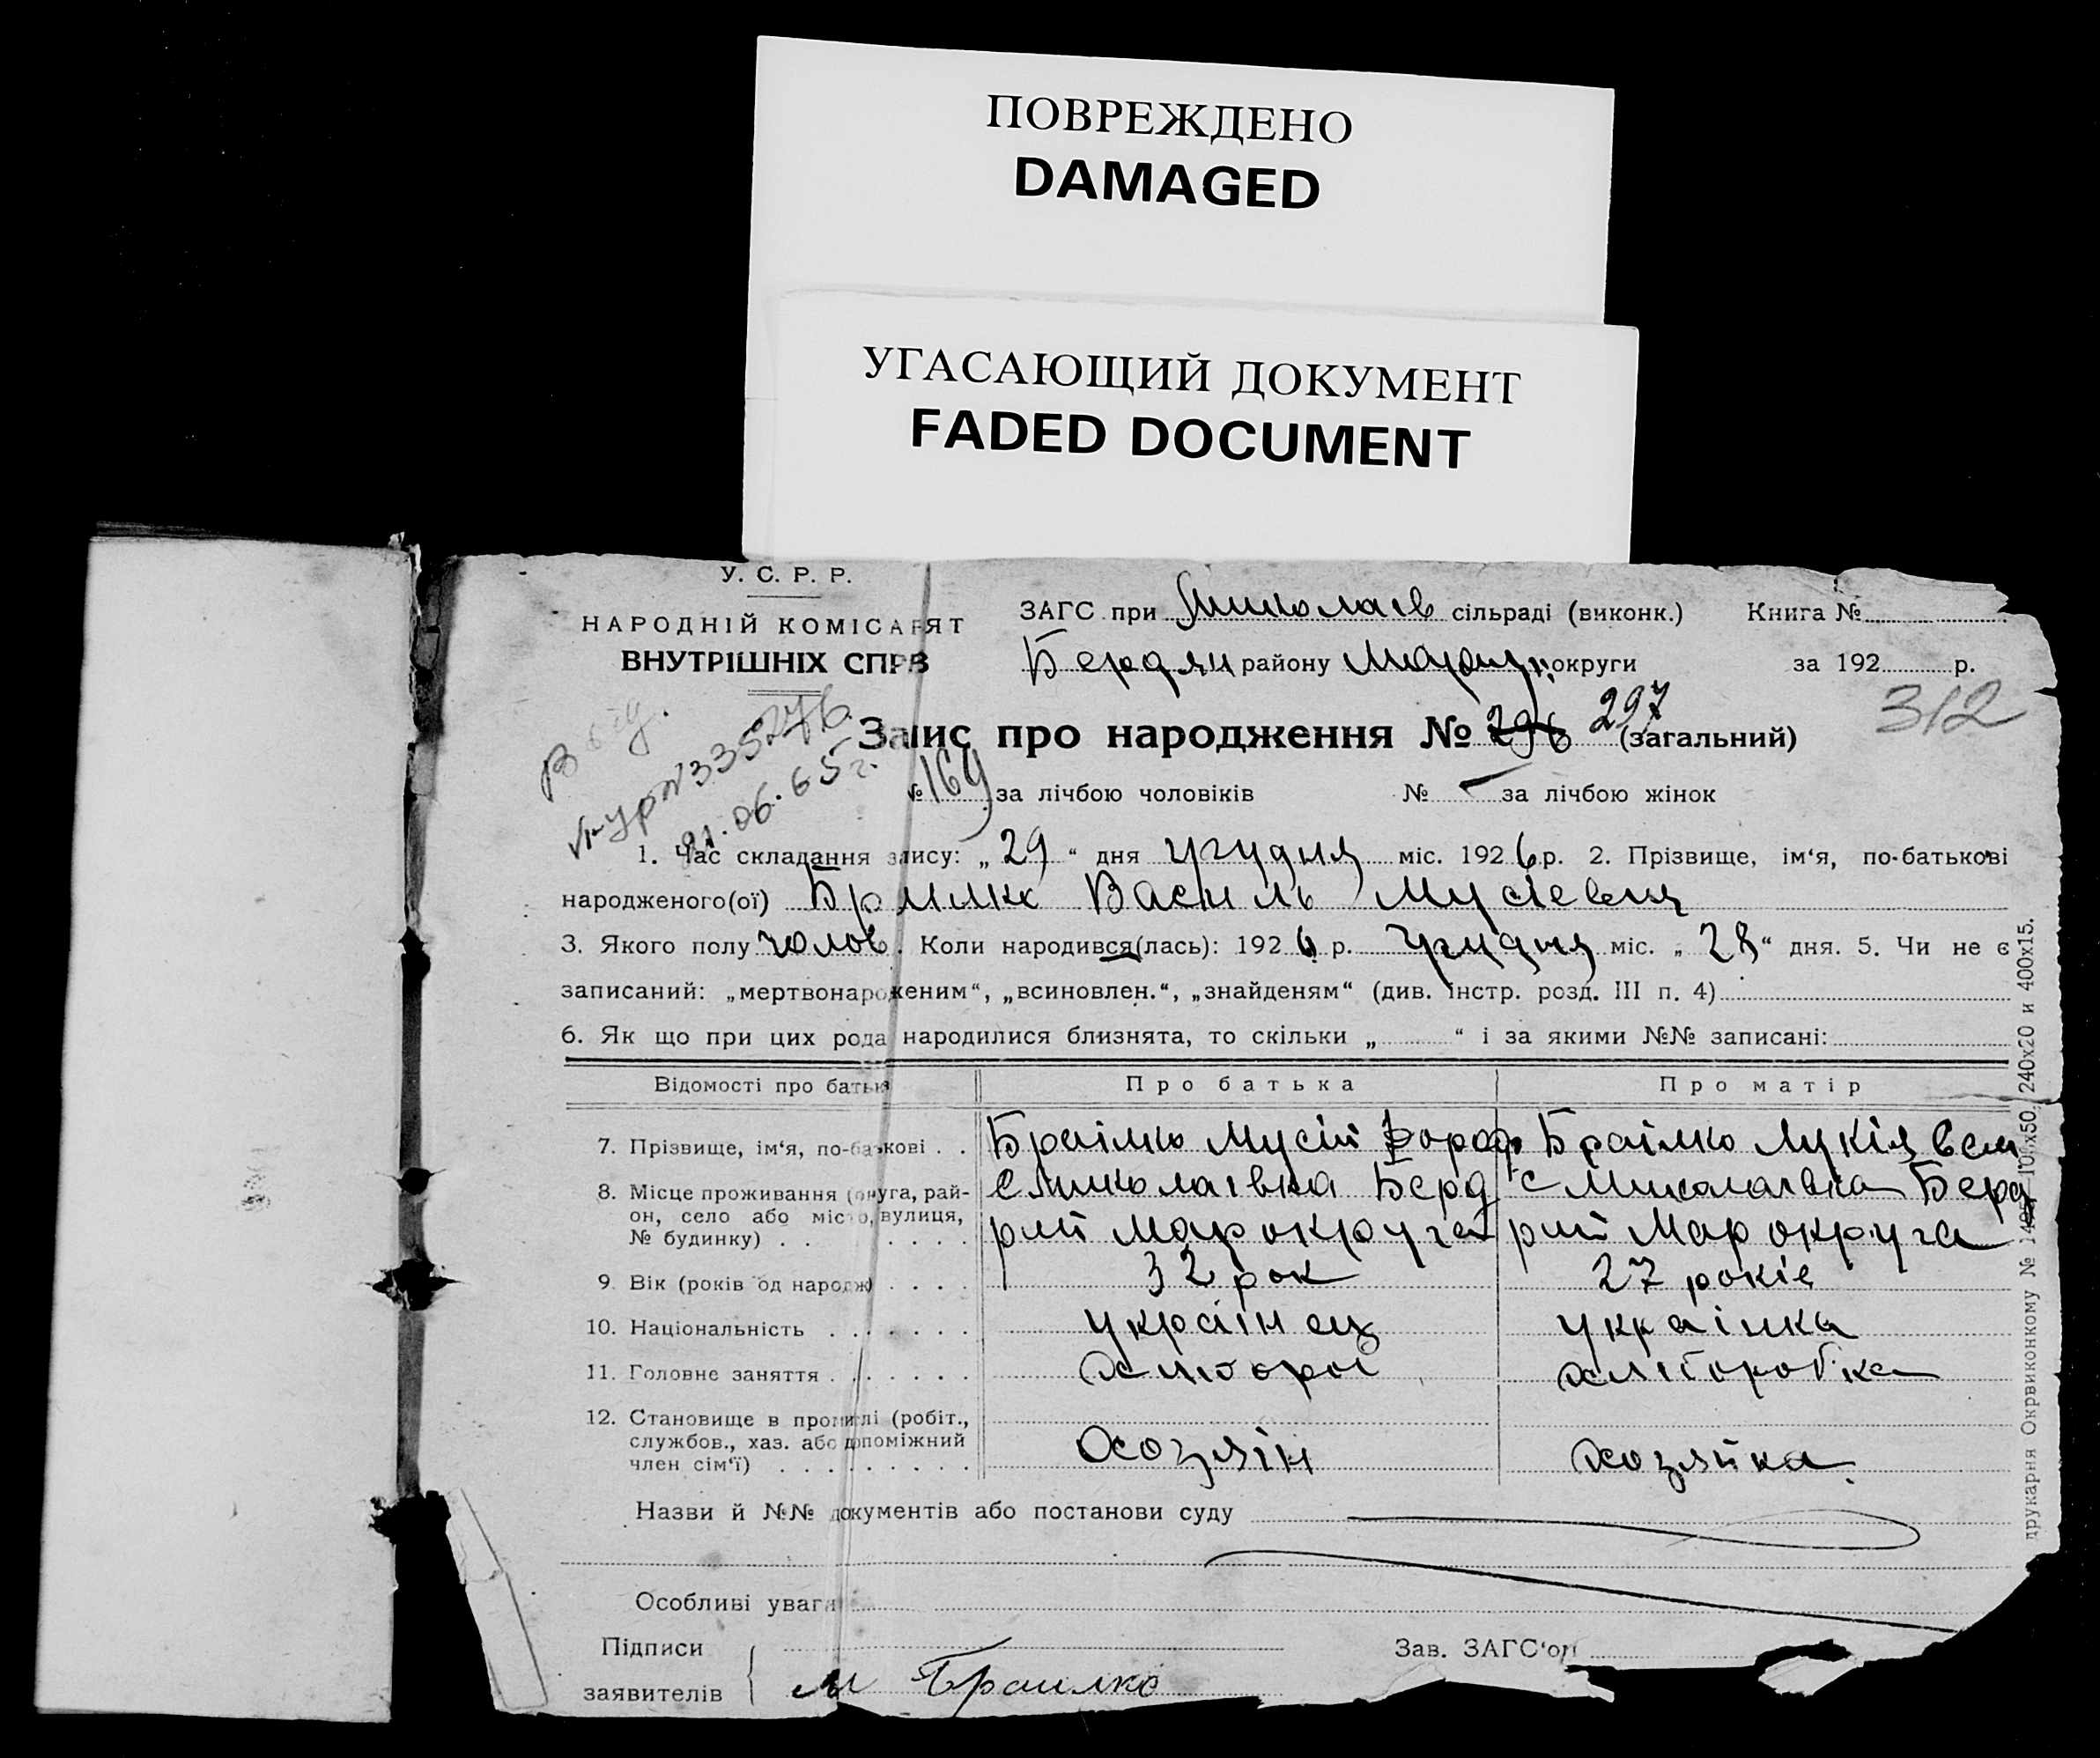 ПОВРЕЖДЕНО
DAMAGED
УГАСАЮЩИЙ ДОКУМЕНТ
FADED DOCUMENT
У. С. Р. Р.
НАРОДНІЙ КОМІСАРЯТ
ВНУТРІШНІХ СПРВ
ЗАГС при Миколаїв сільраді (виконк.) Книга №
Бердян району Маріуп. округи за 192 р.
312
Запис про народження № 296 297 (загальний)
№ 169 за лічбою чоловіків № — за лічбою жінок
335276
21.06.65 г.
1. Час складання запису: „29“ дня грудня міс. 1926 р. 2. Прізвище, ім‘я, по-батькові
народженого(ої) Браилко Василь Мусієвич
3. Якого полу чолов. Коли народився(лась): 1926 р. грудня міс. „28“ дня. 5. Чи не є
записаний: „мертвонароженим“, „всиновлен.“, „знайденям“ (див. інстр. розд. III п. 4)
6. Як що при цих рода народилися близнята, то скільки „ “ і за якими №№ записані:
Відомості про батьк Про батька Про матір
7. Прізвище, ім‘я, по-батькові . . Браілко Мусій Браілко Лукія
8. Місце проживання (округа, рай- с Миколаївка Берд с Миколаївка Берд
он, село або місто, вулиця, рай Мар округа рай Мар округа
№ будинку) . .
9. Вік (років од народж) . . . . 32 рок 27 років
10. Національність . . . . . . українец українка
11. Головне заняття . . . . . . хлібороб хліборобка
12. Становище в промислі (робіт.,
службов., хаз. або допоміжний хозяїн хозяйка
член сім‘ї) . . . . . . . . .
Назви й №№ документів або постанови суду
Особливі уваги
Підписи
Зав. ЗАГС‘ом
заявителів М Браилко
друкарня Окрвиконкому № 240х20 и 400х15.